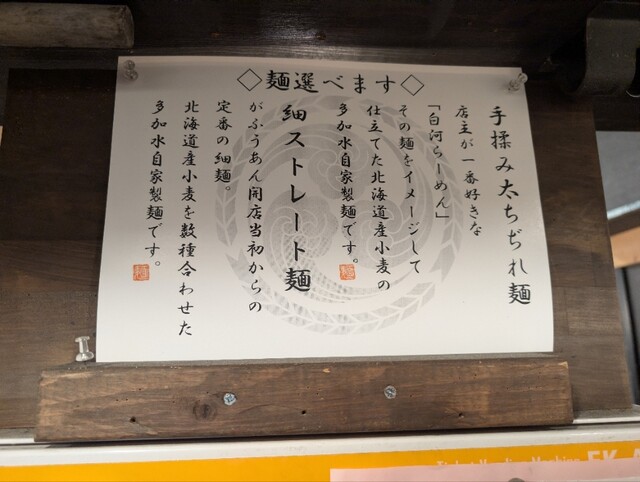 ◇麺選べます◇
手揉み太ちぢれ麺
店主が一番好きな
「白河らーめん」
その麺をイメージして
仕立てた北海道産小麦の
多加水自家製麺です。
細ストレート麺
がふうあん開店当初からの
定番の細麺。
北海道産小麦を数種合わせた
多加水自家製麺です。
Ticket Vending Machine